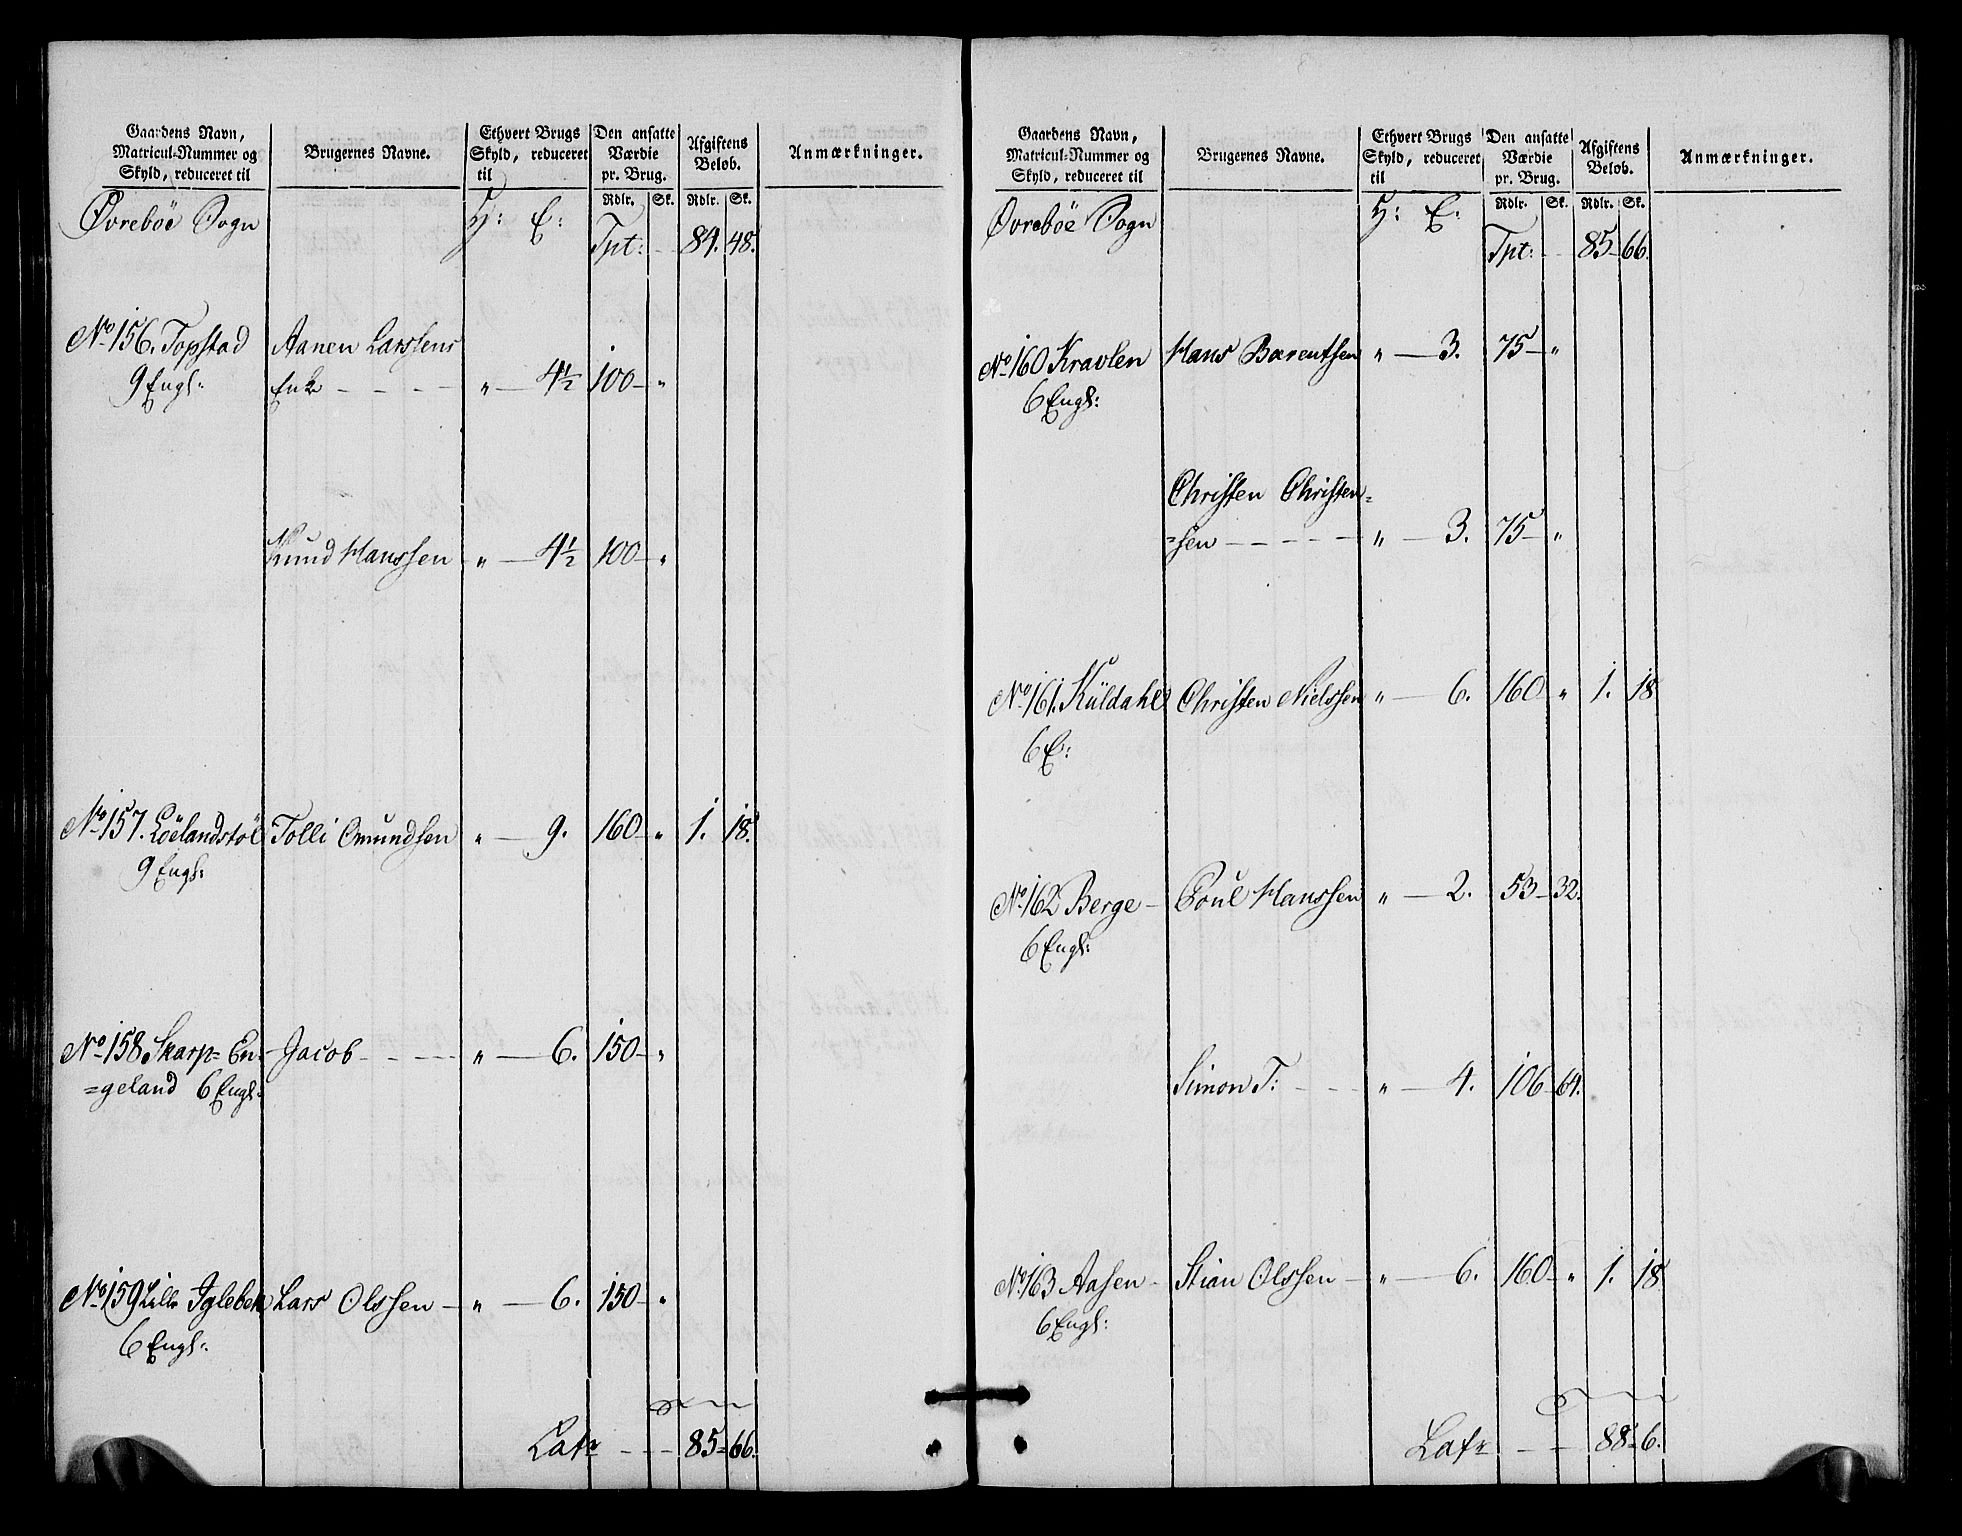 Gaardens Navn, Matricul-Nummer og Skyld, reduceret til | Brugernes Navne. | Ethvert Brugs Skyld, reduceret til | Den ansatte Værdie pr. Brug. | Afgiftens Beløb. | Anmærkninger.
Rdlr. | Sk. | Rdlr. | Sk.
Øvrebøe Sogn | H: E: | Tpt: - - 84. 48.
No 156. Topstad | Aanen Larssens
9 Engl: | Enke - - - - | „ — 4½ | 100 — „
Knud Hanssen | „ — 4½ | 100 — „
No 157. Löelandstöl | Tolli Omundsen | „ — 9. | 160 — „ | 1. | 18.
9 Engl:
No 158 Skarp= En- | Jacob - - - - | „ — 6. | 150 — „
=geland 6 Engl:
No 159 Lille Iglebek | Lars Olssen — | „ — 6. | 150 — „
6 Engl:
Latr - - - 85 = 66.
Gaardens Navn, Matricul-Nummer og Skyld, reduceret til | Brugernes Navne. | Ethvert Brugs Skyld, reduceret til | Den ansatte Værdie pr. Brug. | Afgiftens Beløb. | Anmærkninger.
Rdlr. | Sk. | Rdlr. | Sk.
Øvrebøe Sogn | H: E: | Tpt: - - 85 — 66.
No 160 Kravlen | Hans Barentsen | „ — 3. | 75 — „
6 Engl:
Christen Christen=
=sen - - - - - | „ — 3. | 75 — „
No 161. Küldahl | Christen Nielssen | „ — 6. | 160 „ | 1. | 18
6 E:
No 162 Berge — | Poul Hanssen | „ — 2. | 53 — 32.
6 Engl:
Simon T: - - - | „ — 4. | 106 — 64.
No 163 Aasen — | Stian Olssen — | „ — 6. | 160 — „ | 1. | 18
6 Engl:
Latr - - 88 = 6.